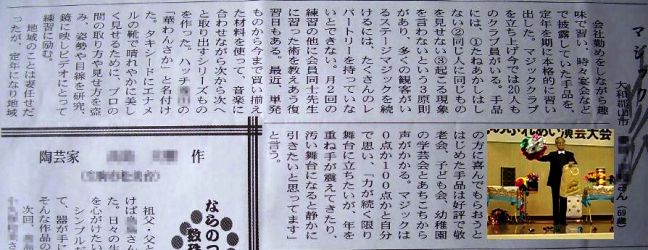 マジック
大和郡山市
さん(69歳)
会社勤めをしながら趣
味で習い、時々宴会など
で披露していた手品を、
定年を期に本格的に習い
出した。マジッククラブ
を立ち上げ今では20人も
のクラブ員がいる。手品
には、①たねあかしはし
ない②同じ人に同じもの
を見せない③起こる現象
を言わないという3原則
があり、多くの観客がい
るステージマジックを続
けるには、たくさんのレ
パートリーを持っていな
いとできない。月2回の
練習の他に会員同士先生
に習った術を教えあう復
習日もある。最近、単発
ものから今まで買い揃え
た材料を使って、音楽に
合わせながら次から次へ
と取り出すシリーズもの
を作った。ハッチ
「華わんさか」と名付け
た。タキシードとエナメ
ルの靴で晴れやかに美し
く見せるために、プロの
間の取り方や見せ方を盗
み、姿勢や目線を研究、
鏡に映しビデオにとって
練習に励む。
地域のことは妻任せだ
ったが、定年になり地域
の方に喜んでもらおうと
はじめた手品は好評で敬
老会、子ども会、幼稚園
の学芸会とあちこちから
声がかかる。マジックは
0点か100点かと自分
で思い、「力が続く限り
舞台に立ちたいが、年を
重ね手が震えてきたり、
汚い舞台になると静かに
引きたいと思ってます」
と言う。
ふれあい演芸大会
陶芸家
作
ならのつ
数発
祖父・父と
けば
さん
た。日々の作
を心がけたい
シンプルで
て、器が手に
そんな作品の
次回